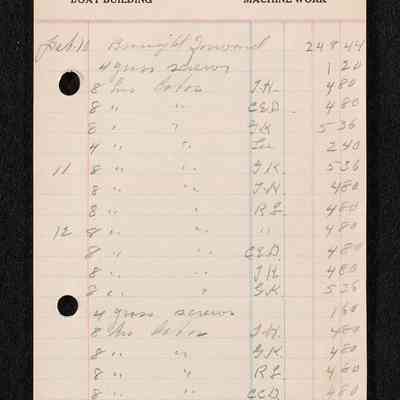 BOAT BUILDING MACHINE WORK
Feb. 10 Brought Forward 248 44
4 gross screws 1 20
8 hrs labor J.H. 4 80
8 " " C.E.D. 4 80
8 " " G.K. 5 36
4 " " 2 40
11 8 " " G.K. 5 36
8 " " J.H. 4 80
8 " " R.L. 4 80
12 8 " " " 4 80
8 " " C.E.D. 4 80
8 " " J.H. 4 80
8 " " G.K. 5 36
4 gross screws 1 60
8 hrs labor J.H. 4 80
8 " " G.K. 4 80
8 " " R.L. 4 80
8 " " C.E.D. 4 80